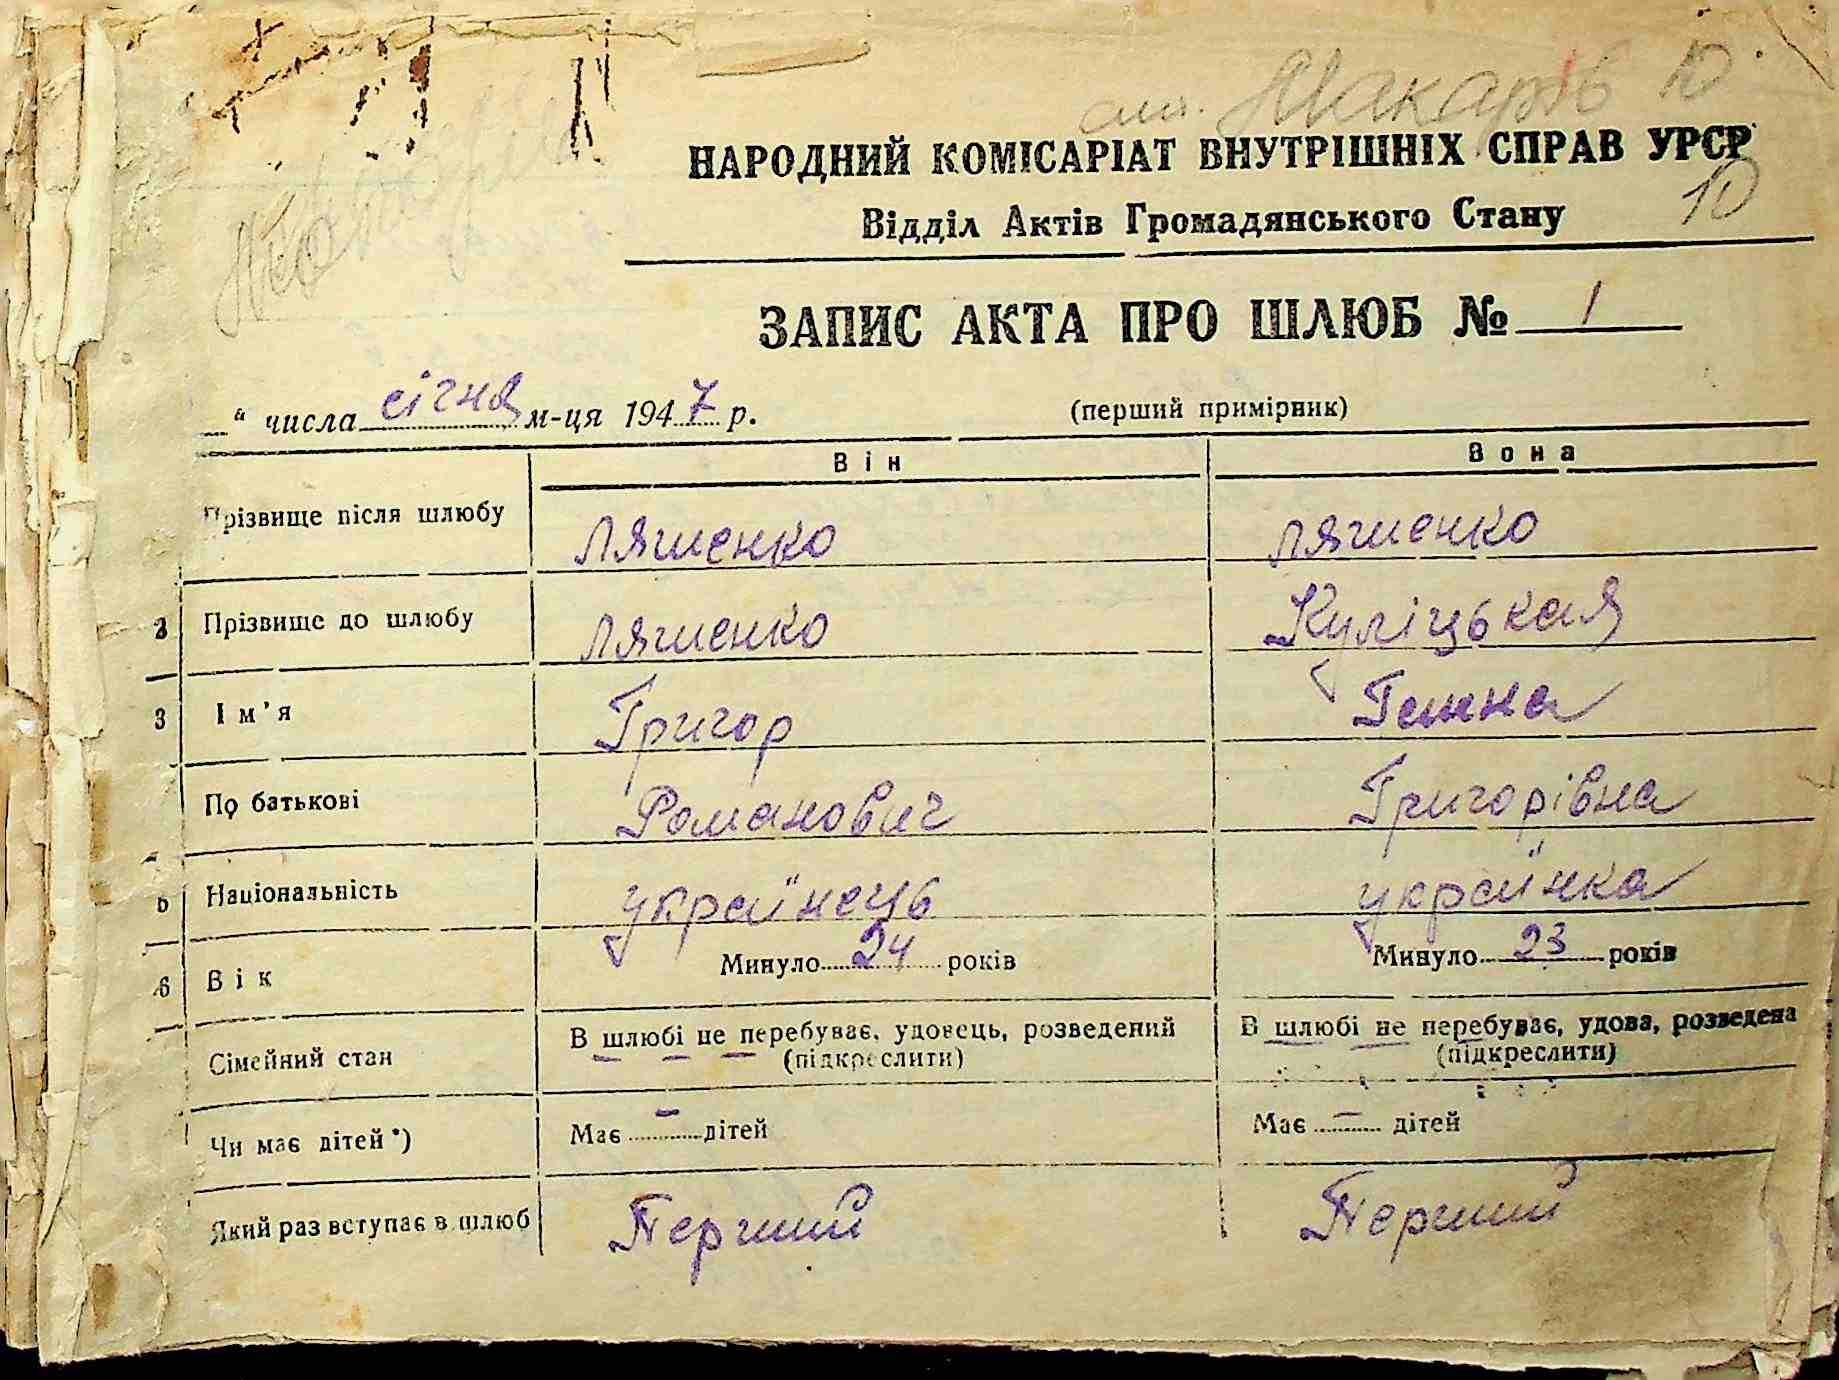 смт. Макарів 10
НАРОДНИЙ КОМІСАРІАТ ВНУТРІШНІХ СПРАВ УРСР
10
Відділ Актів Громадянського Стану
ЗАПИС АКТА ПРО ШЛЮБ № 1
" числа січня м-ця 1947 р. (перший примірник)
Він Вона
Прізвище після шлюбу Ляшенко Ляшенко
2 Прізвище до шлюбу Ляшенко Куліцькая
3 Ім'я Григор Ганна
По батькові Романович Григорівна
5 Національність українець українка
6 Вік Минуло 24 років Минуло 23 років
Сімейний стан В шлюбі не перебуває, удовець, розведений В шлюбі не перебуває, удова, розведена
(підкреслити) (підкреслити)
Чи має дітей*) Має - дітей Має - дітей
Який раз вступає в шлюб Перший Перший